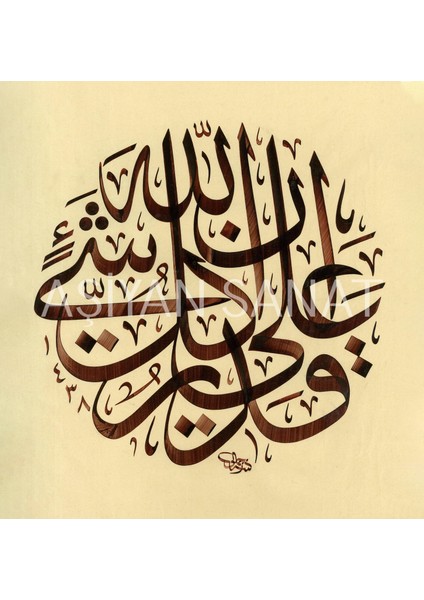 اِنَّ اللّٰهَ عَلٰى كُلِّ شَيْءٍ قَدِيرٌ
١٤٣٨
AŞİYAN SANAT